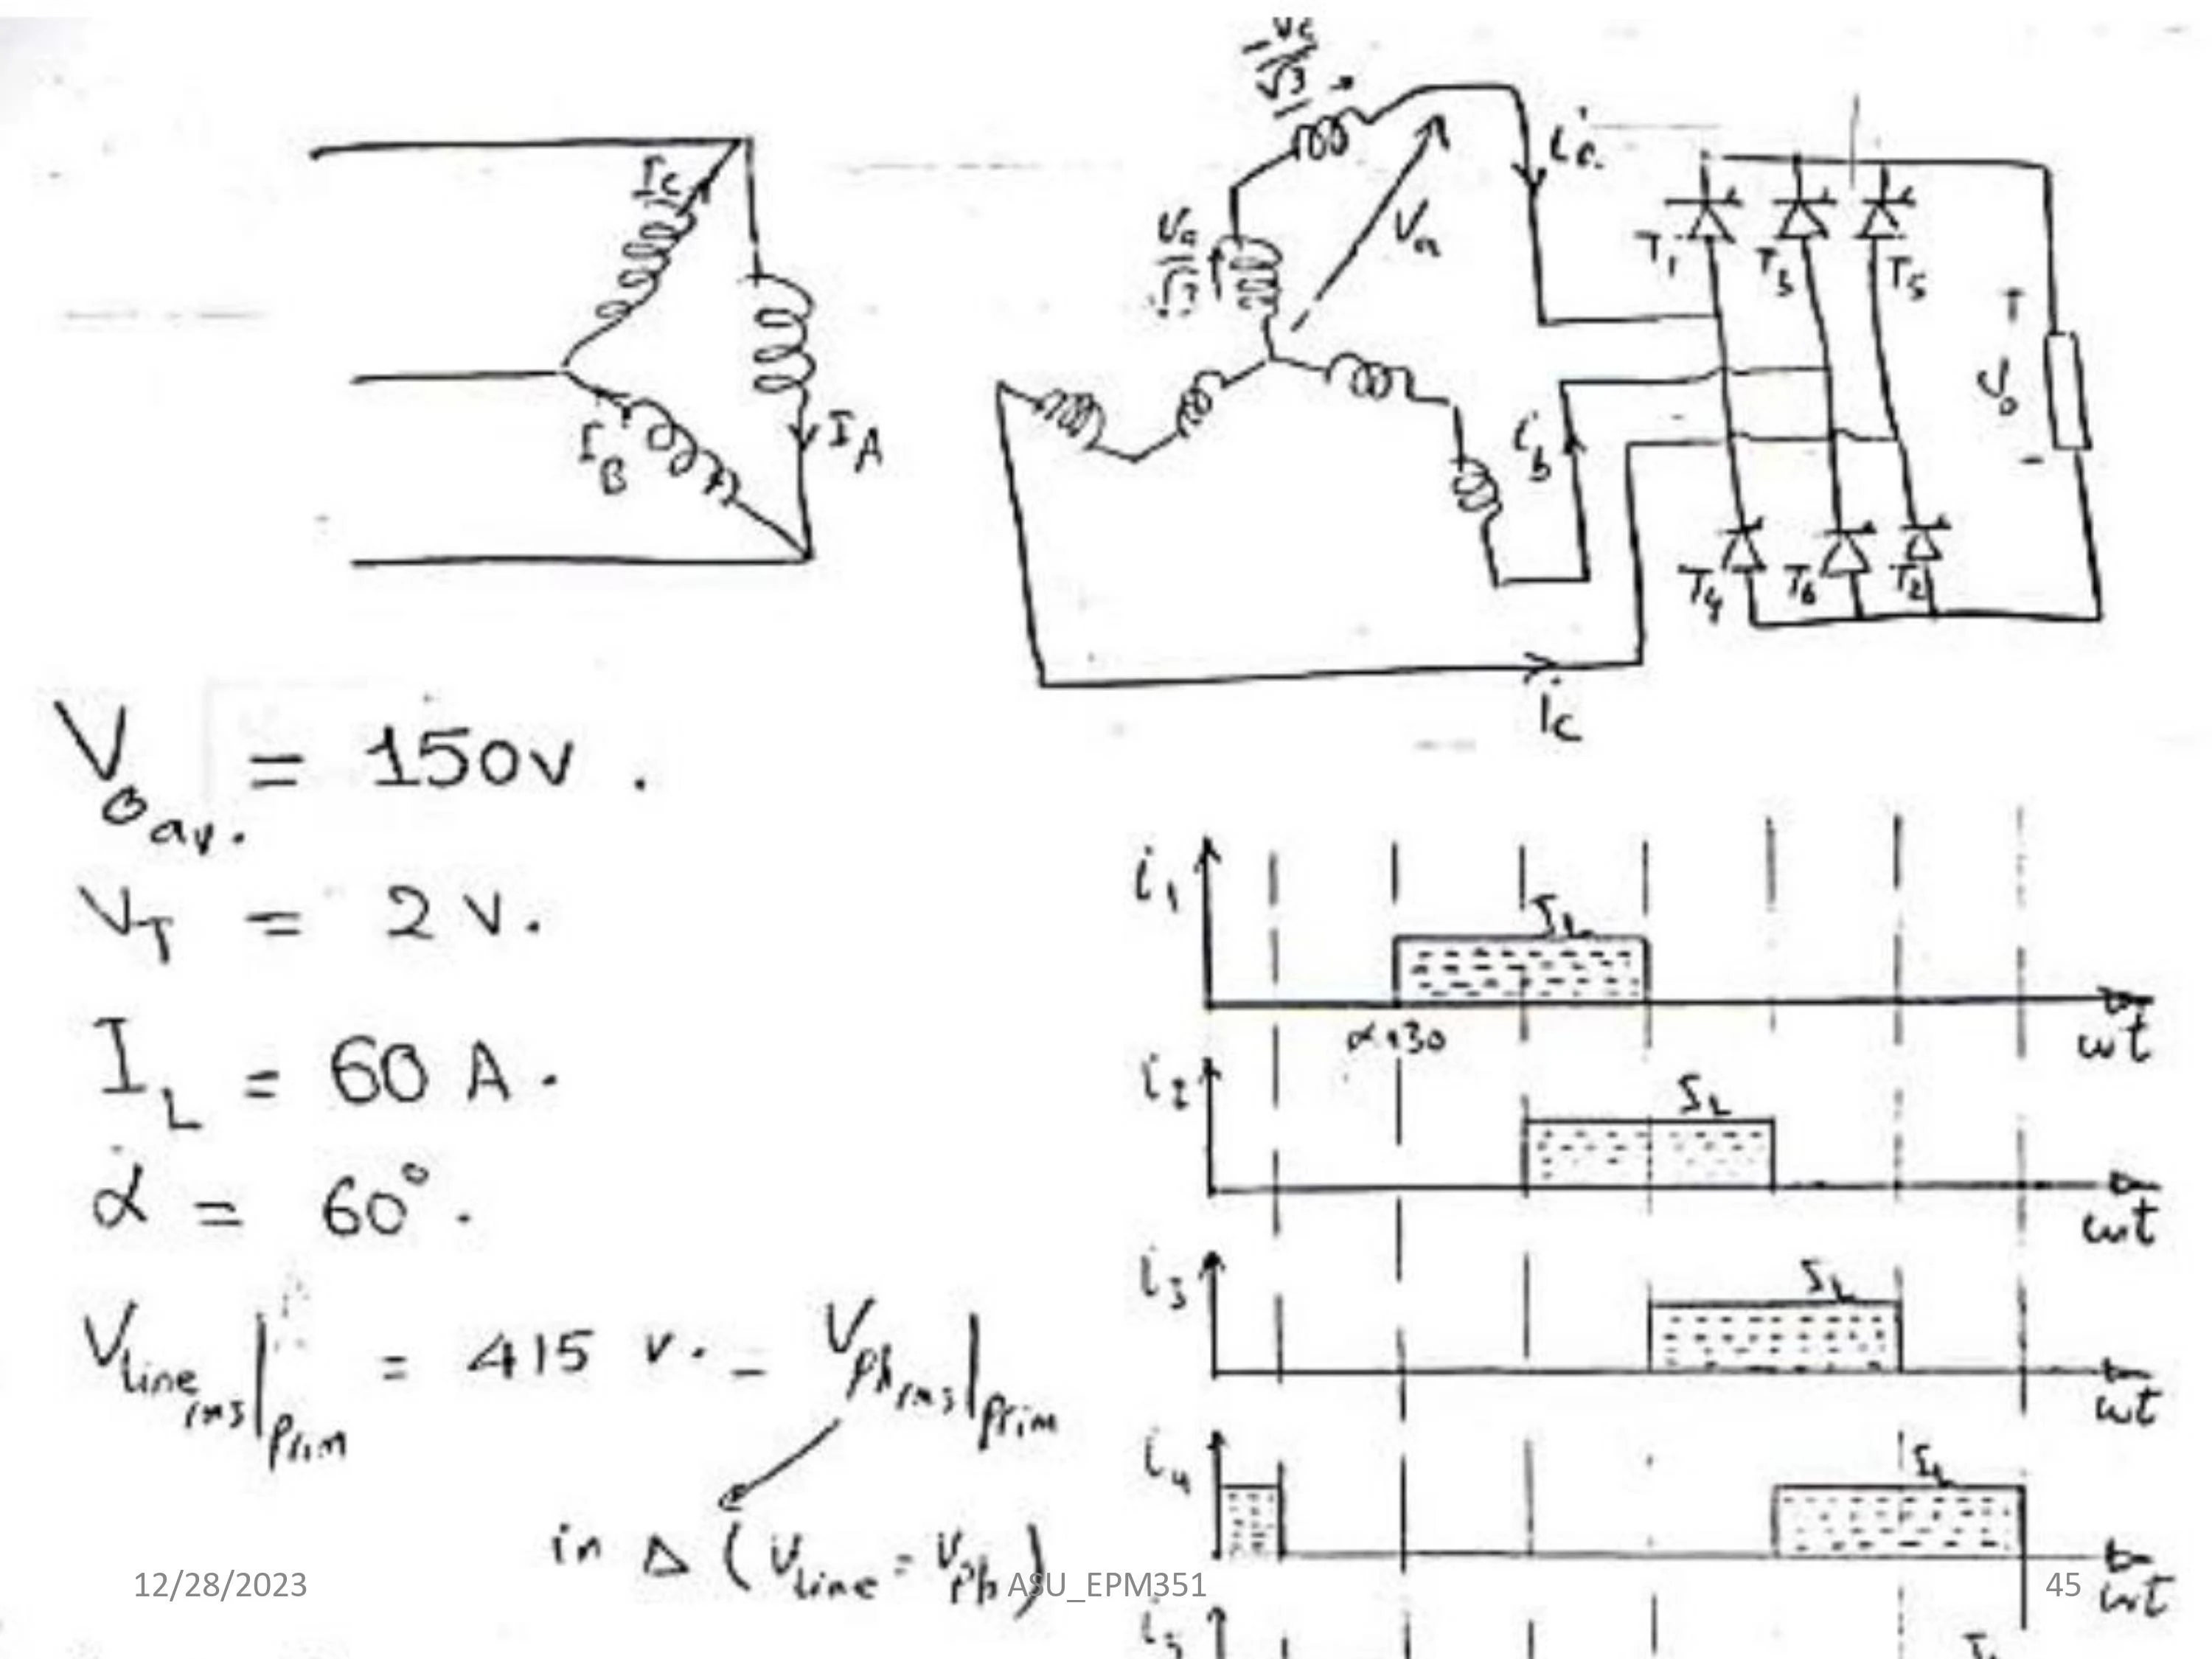 Vc/√3
ia
Ic
Va/√3
Va
T1
T3
T5
+
Vo
-
IA
IB
ib
T4
T6
T2
ic
Vo av. = 150v.
VT = 2 v.
IL = 60 A.
α = 60°.
Vline rms|prim = 415 v. = Vph rms|prim
in Δ (Vline = Vph)
i1
IL
α+30
ωt
i2
IL
ωt
i3
IL
ωt
i4
IL
ωt
i5
12/28/2023
ASU_EPM351
45